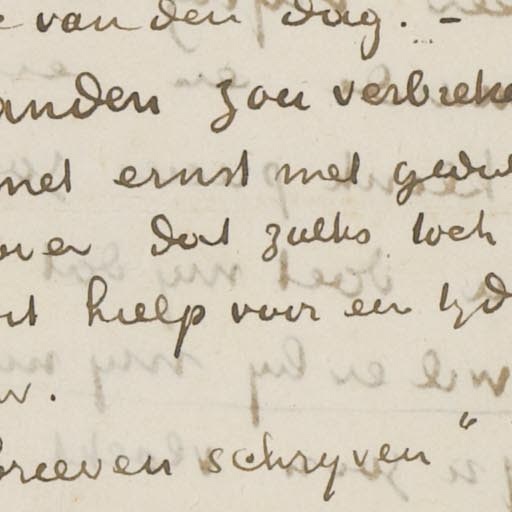 van den dag. -
anden zou verbreke
met ernst met gedul
over dat zulks toch
hielp voor een tyd
brieven schryven"